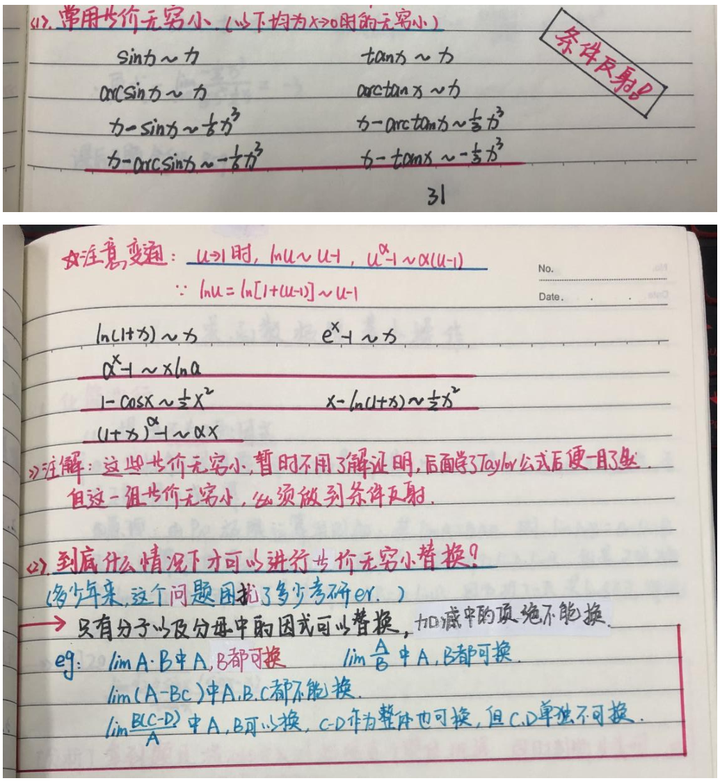 <1>. 常用等价无穷小.(以下均为x→0时的无穷小)
条件反射!
sinx~x tanx~x
arcsinx~x arctanx~x
x-sinx~1/6x³ x-arctanx~1/3x³
x-arcsinx~-1/6x³ x-tanx~-1/3x³
31
☆注意变通: u→1时, lnu~u-1, u^α-1~α(u-1)
No.
∵ lnu=ln[1+(u-1)]~u-1
Date. . .
ln(1+x)~x e^x-1~x
a^x-1~xlna
1-cosx~1/2x² x-ln(1+x)~1/2x²
(1+x)^α-1~αx
>>注解: 这些等价无穷小,暂时不用了解证明,后面学了Taylor公式后便一目了然.
但这一组等价无穷小, 必须做到条件反射.
<2> 到底什么情况下才可以进行等价无穷小替换?
(多少年来,这个问题困扰了多少考研er.)
→ 只有分子以及分母中的因式可以替换, 加减中的项绝不能换.
eg: limA·B中A,B都可换 lim A/B 中A,B都可换.
lim(A-BC)中A,B,C都不能换.
lim B(C-D)/A 中A,B可以换, C-D作为整体也可换, 但C,D单独不可换.